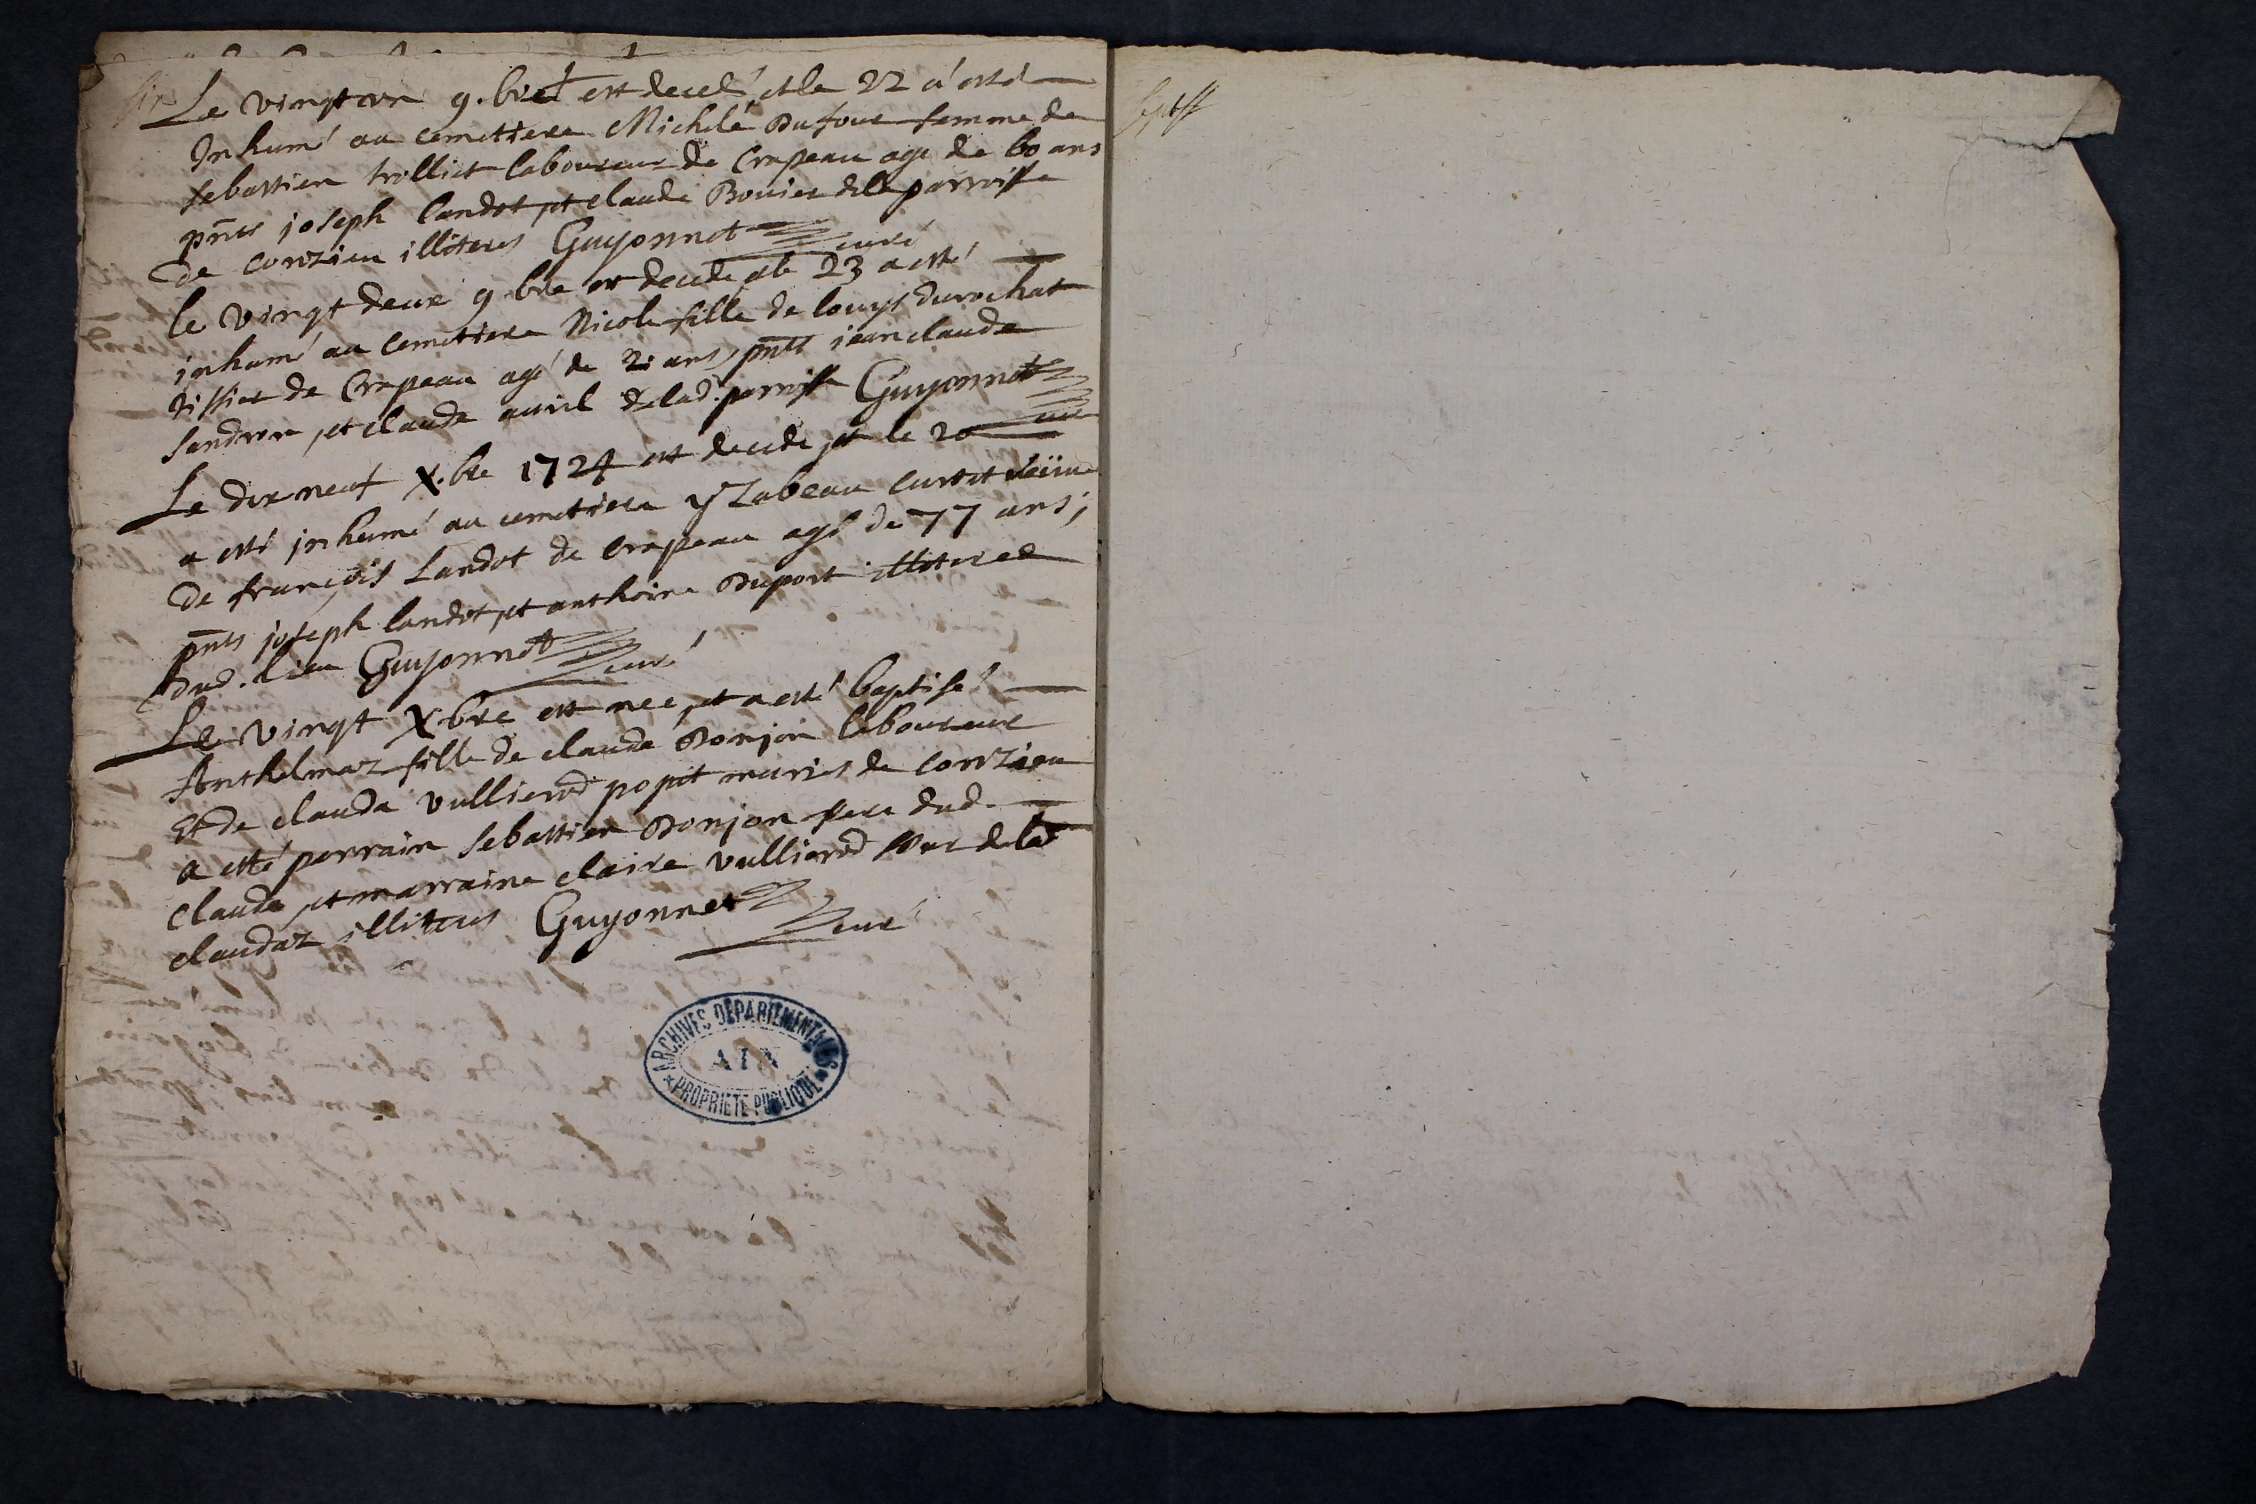 Le vingt un 9.bre est decedé et le 22 a esté
Inhumé au cemettiere Michele Dufour femme de
sebastien trolliet laboureur de Crapeau agé de 60 ans
pnts joseph landot et claude Bouier de la parroisse
de conzieu illiteres Guyonnet curé
le vingt deux 9.bre est decede et le 23 a esté
inhumé au cemettiere Nicole fille de louys durochat
tissier de Crapeau agé de 2 ans, pnts jean claude
landron et claude auril de lad. parroisse Guyonnet
curé
Le dix neuf X.bre 1724 est decede et le 20
a esté inhumé au cemettiere yzabeau curtet
De françois Landot de Crapeau agé de 77 ans;
pnts joseph landot et anthoine Duport illiteres
dud. lieu Guyonnet curé
Le vingt X.bre est nee, et a esté baptisé
Anthelmaz fille de claude Bonjon laboureur
Et de clauda vullierod mariés de conzieu
a esté parrain sebastien Bonjon frere dud.
claude, et marraine claire vullierod seur de la
claudaz illiteres Guyonnet
curé
ARCHIVES DEPARTEMENTALES
AIN
PROPRIETE PUBLIQUE